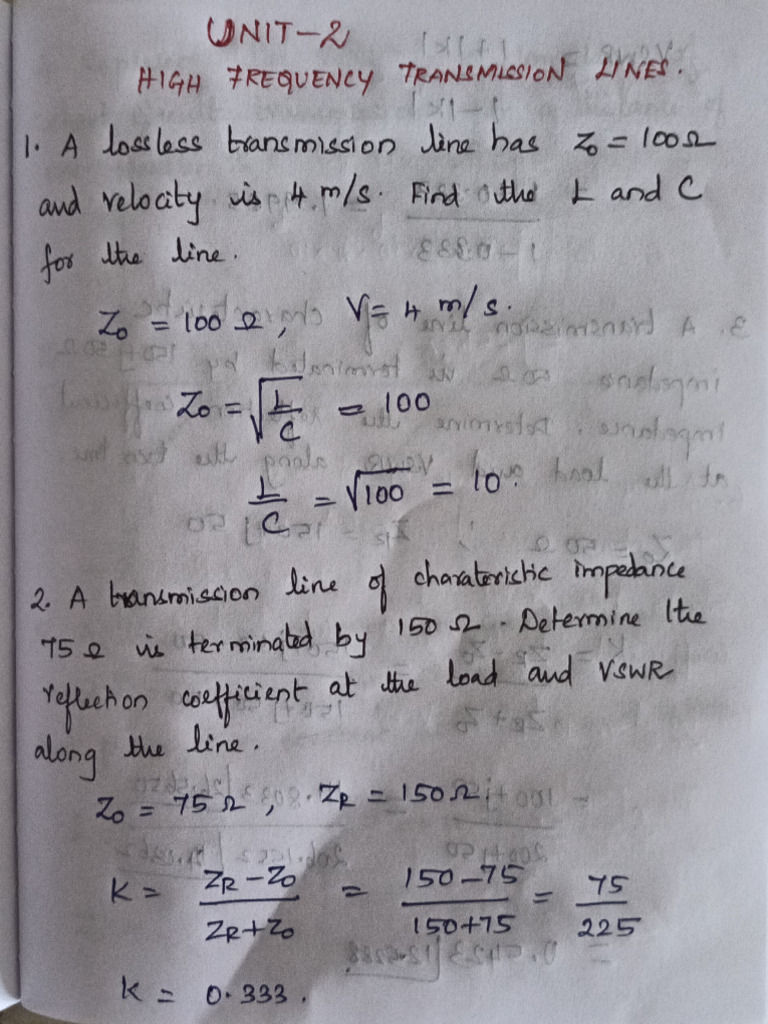 UNIT-2
HIGH FREQUENCY TRANSMISSION LINES.
1. A lossless transmission line has Z₀ = 100Ω
and velocity is 4 m/s. Find the L and C
for the line.
Z₀ = 100 Ω, V = 4 m/s.
Z₀ = √(L/C) = 100
L/C = √100 = 10.
2. A transmission line of charateristic impedance
75 Ω is terminated by 150 Ω. Determine the
reflection coefficient at the load and VSWR
along the line.
Z₀ = 75 Ω, Z_R = 150 Ω
K = (Z_R - Z₀)/(Z_R + Z₀) = (150-75)/(150+75) = 75/225
K = 0.333.